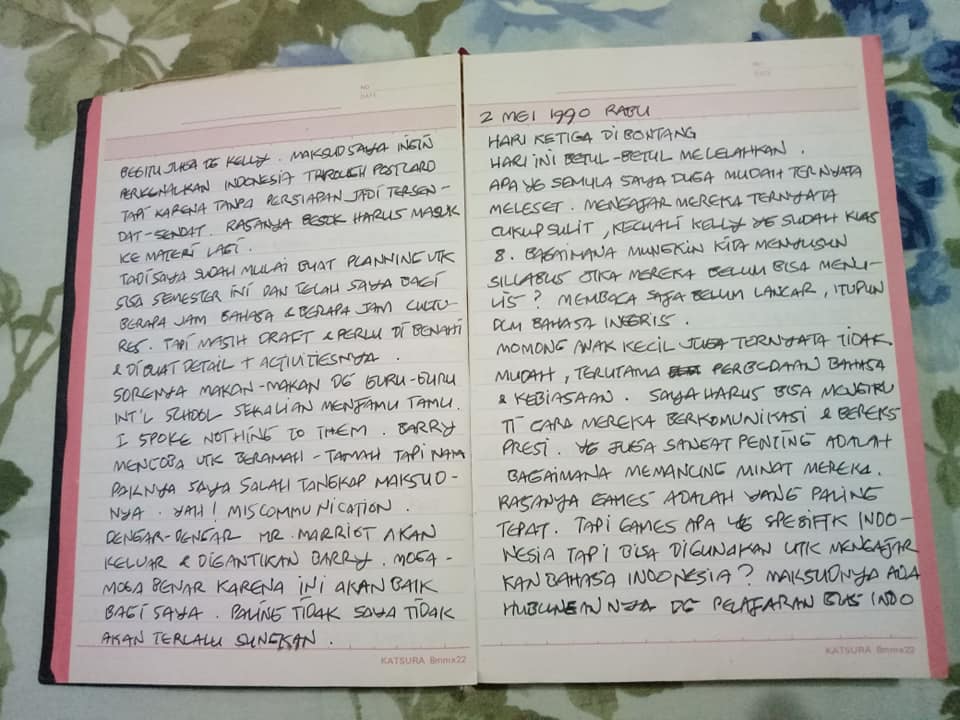 NO
DATE
BEGITU JUGA DG KELLY. MAKSUD SAYA INGIN
PERKENALKAN INDONESIA THROUGH POSTCARD
TAPI KARENA TANPA PERSIAPAN JADI TERSEN-
DAT-SENDAT. RASANYA BESOK HARUS MASUK
KE MATERI LAGI.
TADI SAYA SUDAH MULAI BUAT PLANNING UTK
SISA SEMESTER INI DAN TELAH SAYA BAGI
BERAPA JAM BAHASA & BERAPA JAM CULTU-
RES. TAPI MASIH DRAFT & PERLU DI BENAHI
& DIBUAT DETAIL + ACTIVITIESNYA.
SORENYA MAKAN-MAKAN DG GURU-GURU
INT'L SCHOOL SEKALIAN MENJAMU TAMU.
I SPOKE NOTHING TO THEM. BARRY
MENCOBA UTK BERAMAH-TAMAH TAPI NAM
PAKNYA SAYA SALAH TANGKAP MAKSUD-
NYA. YAH! MISCOMMUNICATION.
DENGAR-DENGAR MR. MARRIOT AKAN
KELUAR & DIGANTIKAN BARRY. MOGA-
MOGA BENAR KARENA INI AKAN BAIK
BAGI SAYA. PALING TIDAK SAYA TIDAK
AKAN TERLALU SUNGKAN.
KATSURA 8mmx22
NO
DATE
2 MEI 1990 RABU
HARI KETIGA DI BONTANG
HARI INI BETUL-BETUL MELELAHKAN.
APA YG SEMULA SAYA DUGA MUDAH TERNYATA
MELESET. MENGAJAR MEREKA TERNYATA
CUKUP SULIT, KECUALI KELLY YG SUDAH KLAS
8. BAGAIMANA MUNGKIN KITA MENYUSUN
SILLABUS JIKA MEREKA BELUM BISA MENU-
LIS? MEMBACA SAJA BELUM LANCAR, ITUPUN
DLM BAHASA INGGRIS.
MOMONG ANAK KECIL JUGA TERNYATA TIDAK
MUDAH, TERUTAMA PERBEDAAN BAHASA
& KEBIASAAN. SAYA HARUS BISA MENGIKU
TI CARA MEREKA BERKOMUNIKASI & BEREKS
PRESI. YG JUGA SANGAT PENTING ADALAH
BAGAIMANA MEMANCING MINAT MEREKA.
RASANYA GAMES ADALAH YANG PALING
TEPAT. TAPI GAMES APA YG SPESIFIK INDO-
NESIA TAPI BISA DIGUNAKAN UTK MENGAJAR
KAN BAHASA INDONESIA? MAKSUDNYA ADA
HUBUNGANNYA DG PELAJARAN BHS INDO
KATSURA 8mmx22